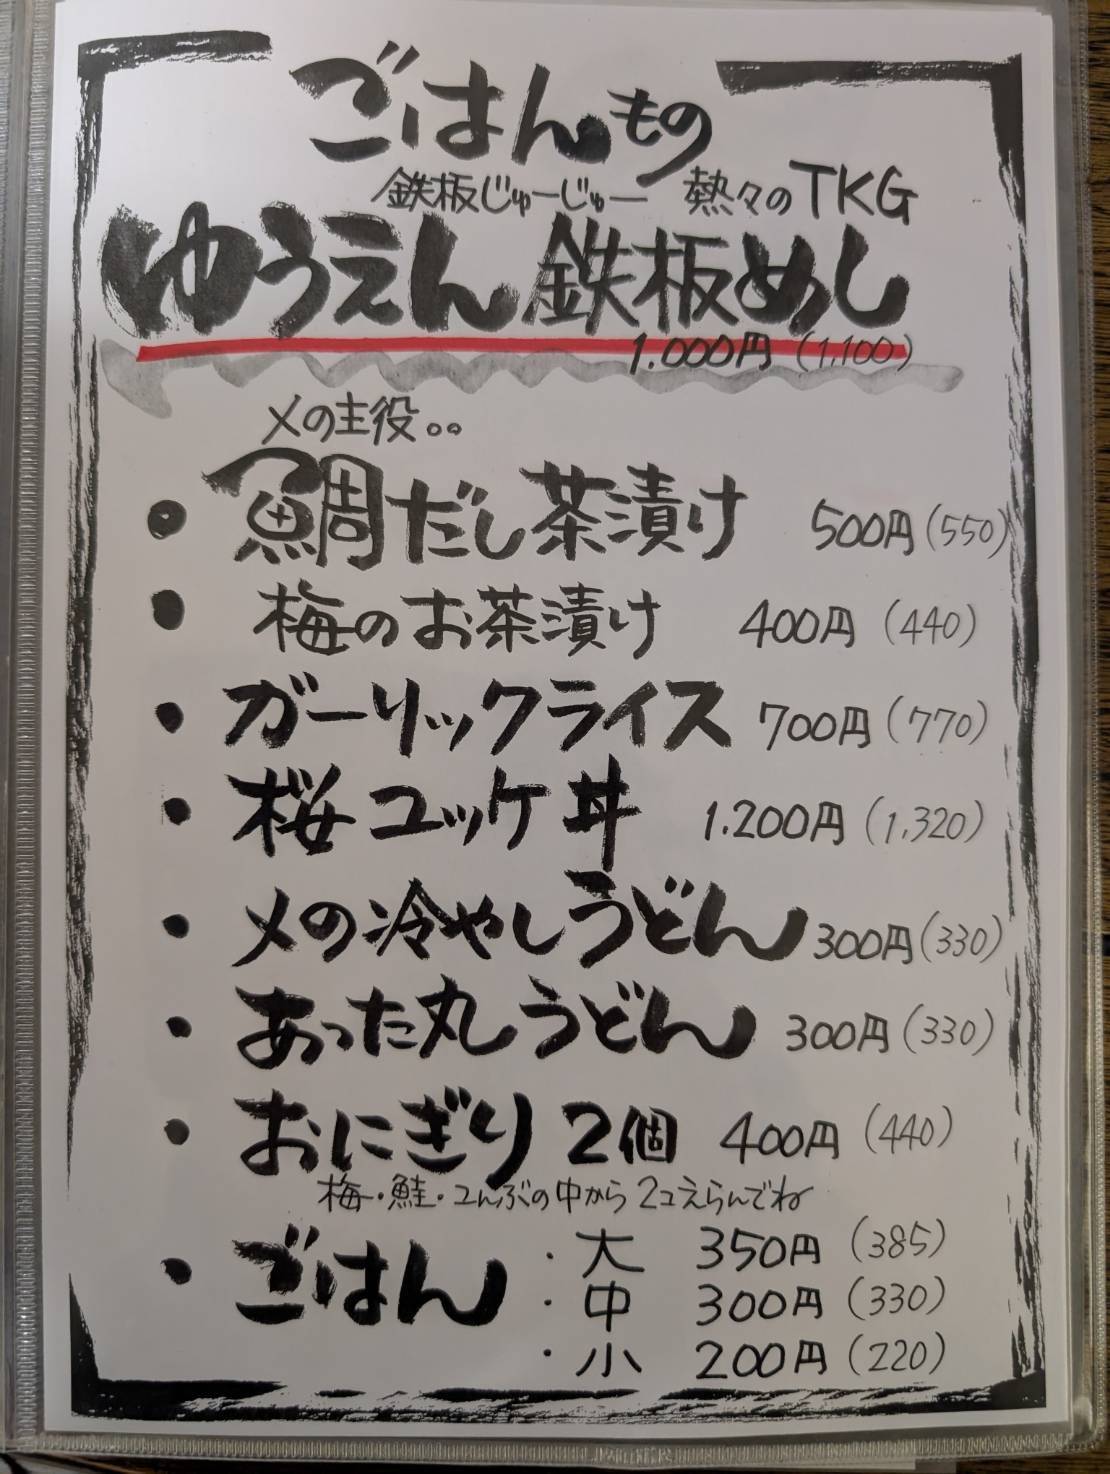 ごはんもの
鉄板じゅーじゅー 熱々のTKG
ゆうえん鉄板めし
1.000円(1,100)
〆の主役。。
・鯛だし茶漬け 500円(550)
・梅のお茶漬け 400円(440)
・ガーリックライス 700円(770)
・桜ユッケ丼 1.200円(1,320)
・〆の冷やしうどん 300円(330)
・あった丸うどん 300円(330)
・おにぎり2個 400円(440)
梅・鮭・こんぶの中から2コえらんでね
・ごはん ・大 350円(385)
・中 300円(330)
・小 200円(220)